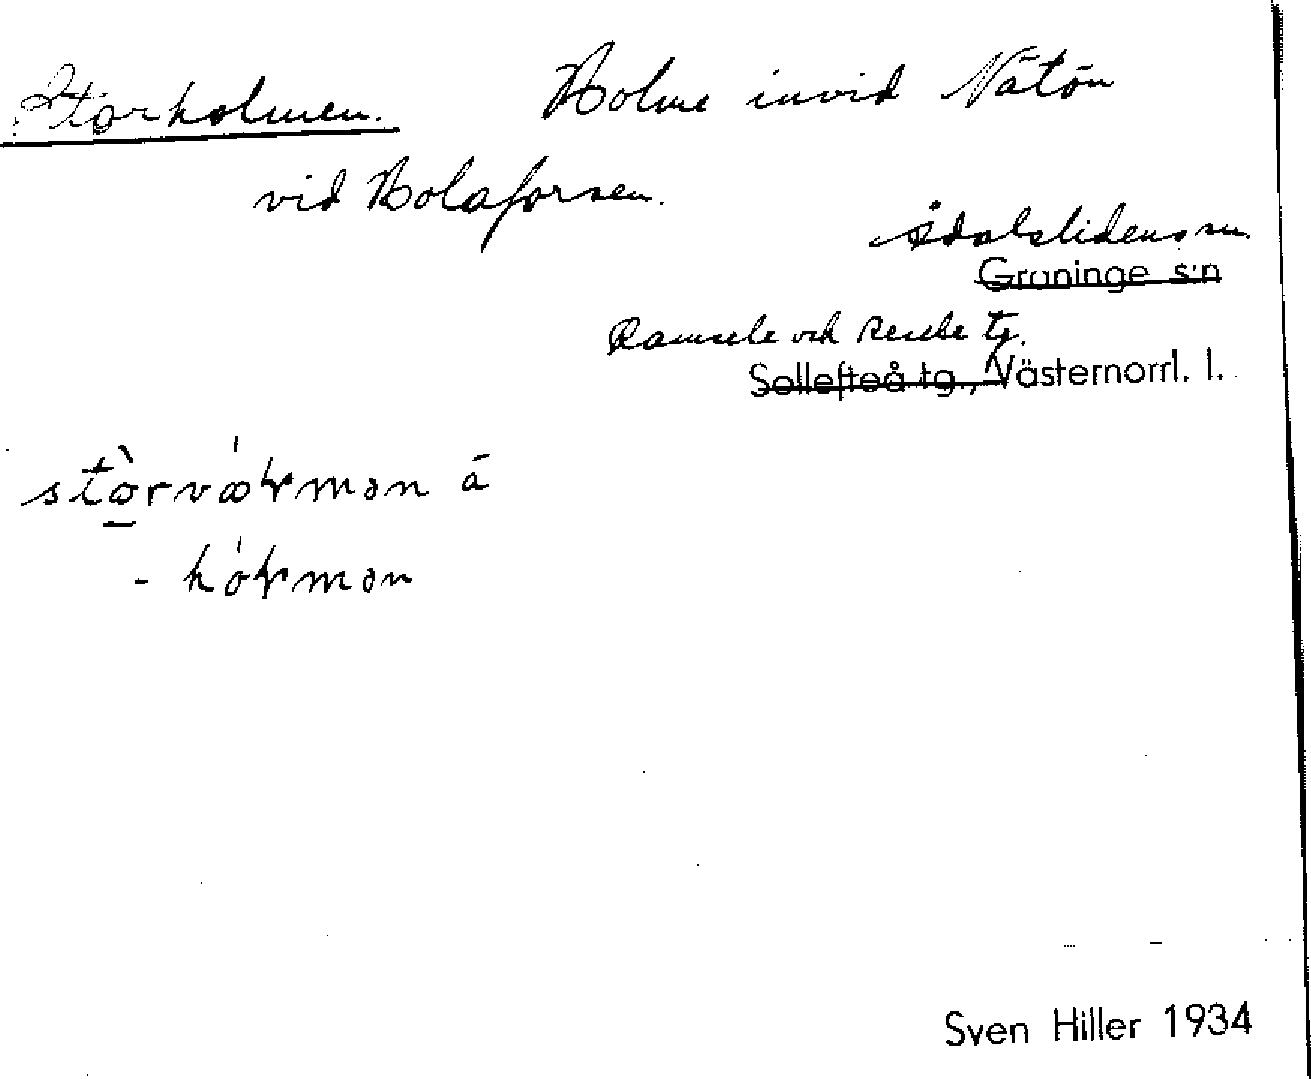 Storholmen. Holme invid Nätön
vid Holaforsen.
Ådalslidens sn
Graninge s:n
Ramsele och Resele tg.
Sollefteå tg., Västernorrl. l.
Sven Hiller 1934